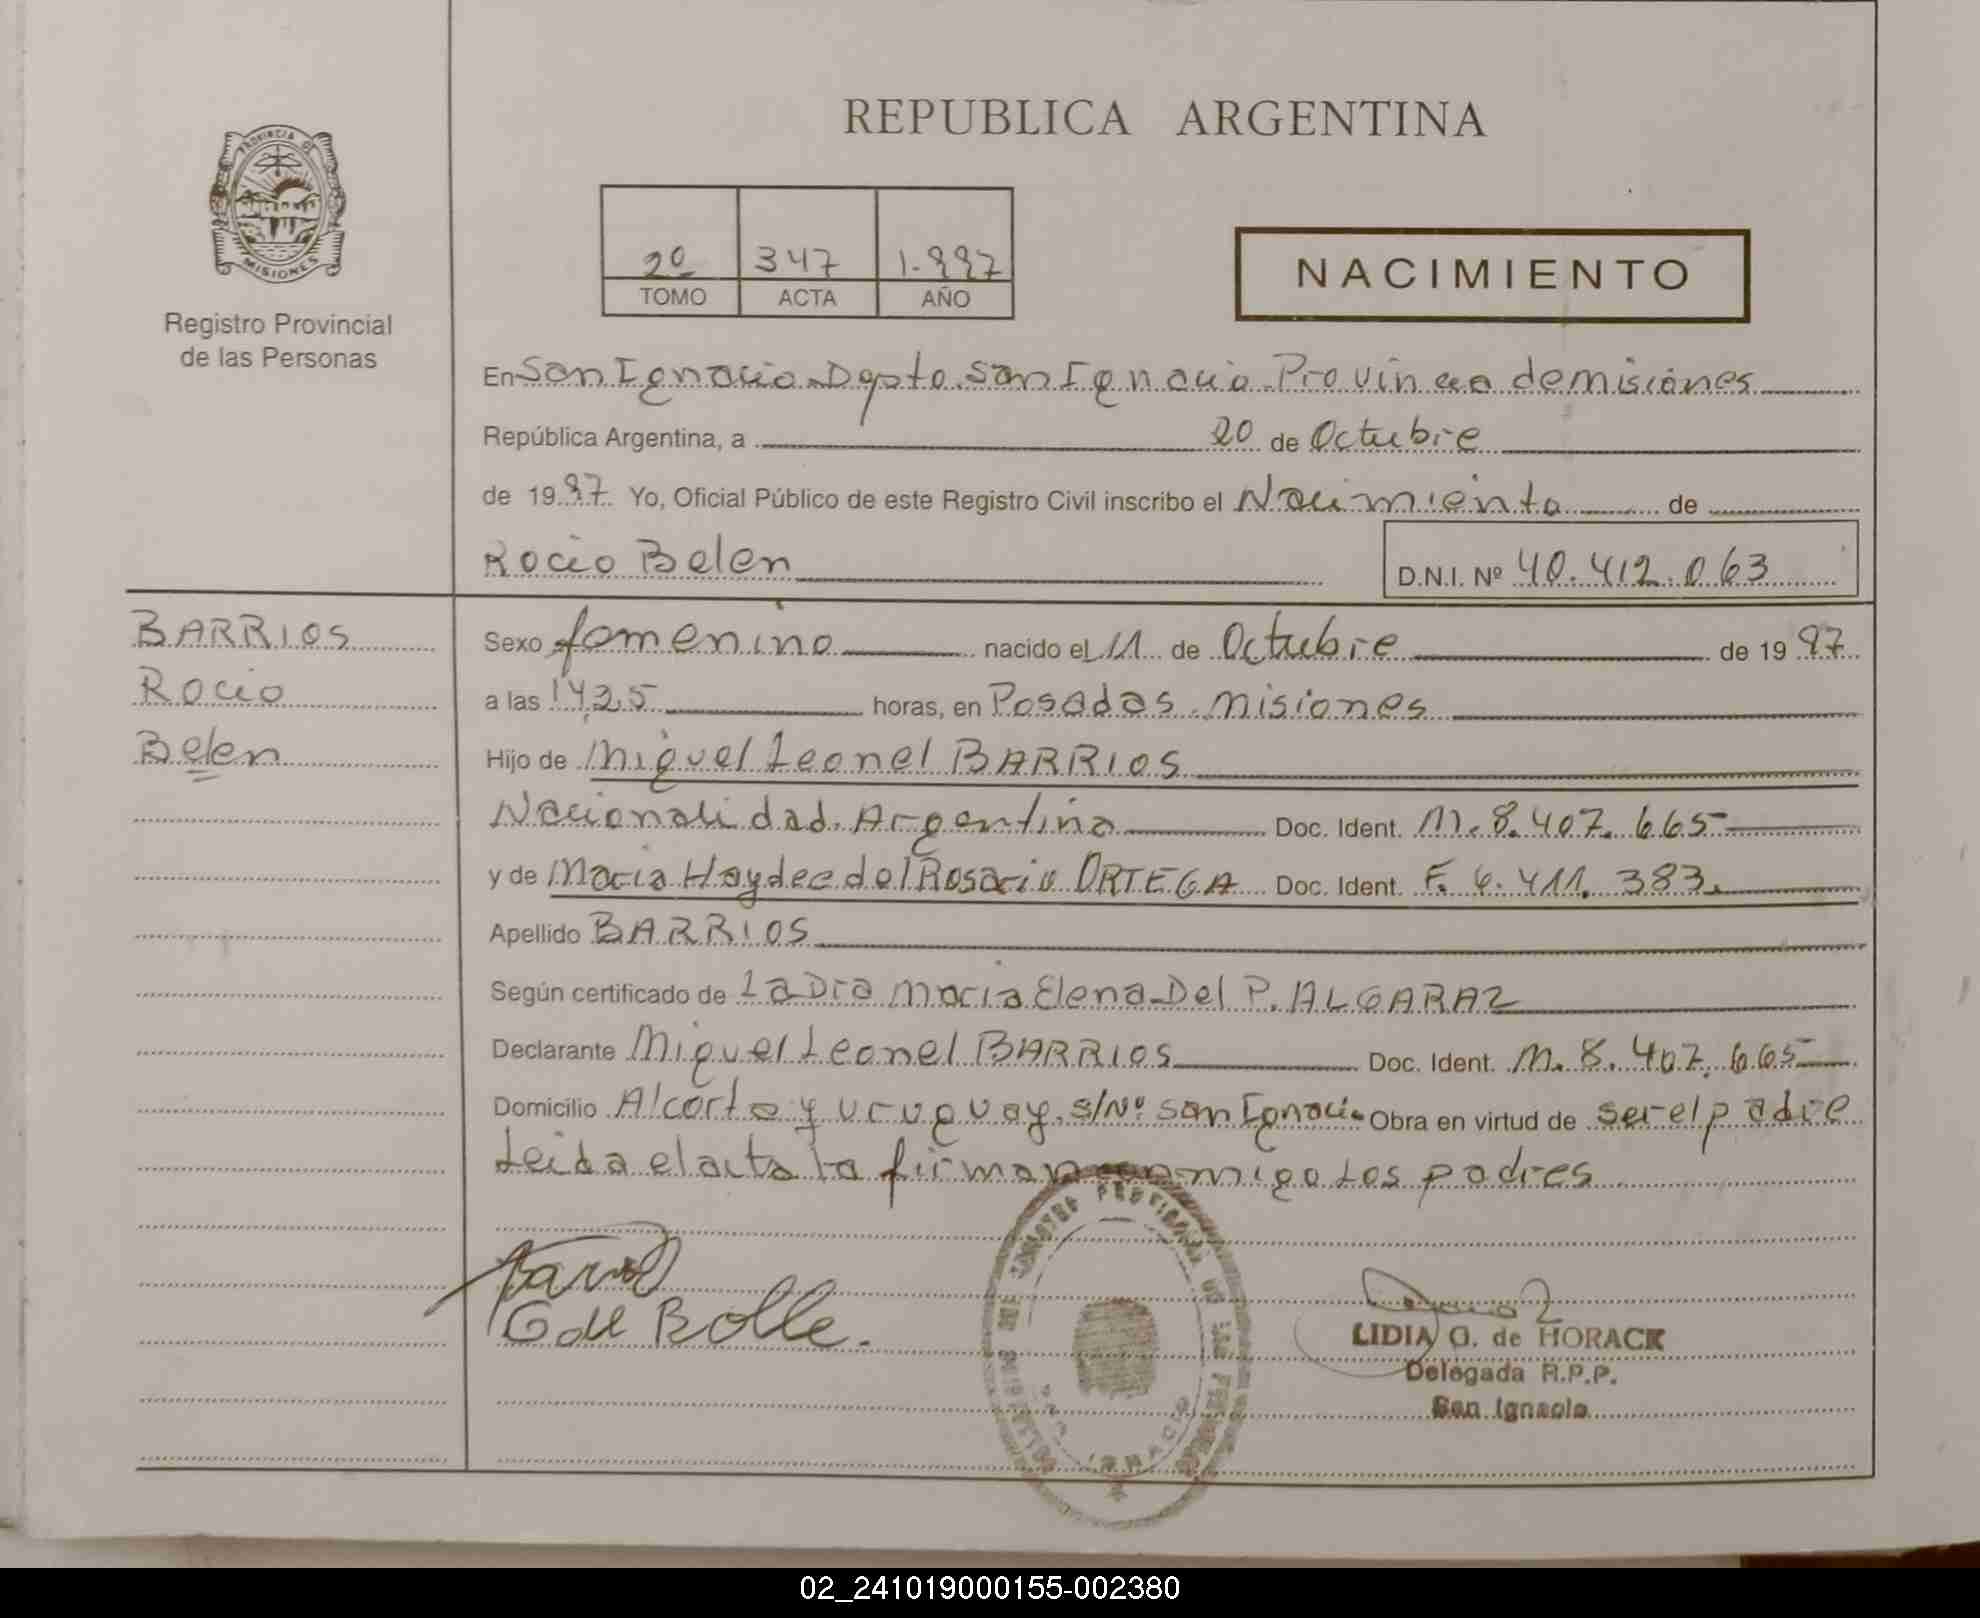 REPUBLICA ARGENTINA
PROVINCIA DE
MISIONES
Registro Provincial
de las Personas
2º 347 1.997
TOMO ACTA AÑO
NACIMIENTO
En San Ignacio Dpto San Ignacio Provincia de misiones
República Argentina, a 20 de Octubre
de 1997 Yo, Oficial Público de este Registro Civil inscribo el Nacimiento de
Rocio Belen
D.N.I. Nº 40.412.063
BARRIOS
Rocio
Belen
Sexo femenino nacido el 11 de Octubre de 1997
a las 14,25 horas, en Posadas misiones
Hijo de Miguel Leonel BARRIOS
Nacionalidad Argentina Doc. Ident. M. 8.407.665
y de Maria Haydee del Rosario ORTEGA Doc. Ident. F. 6.411.383.
Apellido BARRIOS
Según certificado de La Dra Maria Elena Del P. ALGARAZ
Declarante Miguel Leonel BARRIOS Doc. Ident. M. 8.407.665
Domicilio Alcorta y Uruguay s/Nº San Ignacio Obra en virtud de ser el padre
Leida el acta la firman conmigo Los padres
LIDIA G. de HORACK
Delegada R.P.P.
San Ignacio
02_241019000155-002380